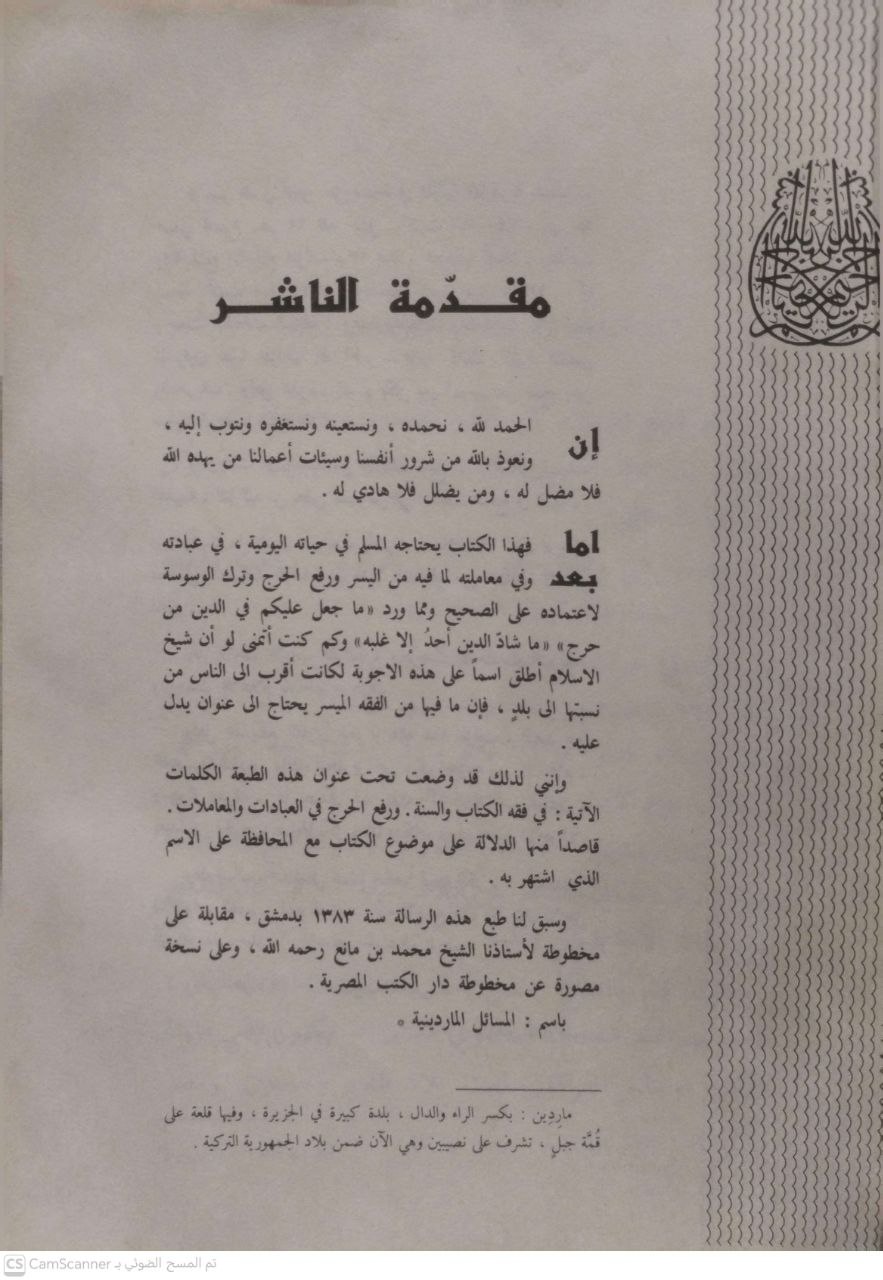 مقدّمة الناشر
إن الحمد لله ، نحمده ، ونستعينه ونستغفره ونتوب إليه ،
ونعوذ بالله من شرور أنفسنا وسيئات أعمالنا من يهده الله
فلا مضل له ، ومن يضلل فلا هادي له .
اما بعد فهذا الكتاب يحتاجه المسلم في حياته اليومية ، في عبادته
وفي معاملته لما فيه من اليسر ورفع الحرج وترك الوسوسة
لاعتماده على الصحيح ومما ورد «ما جعل عليكم في الدين من
حرج» «ما شادّ الدين أحدُ إلا غلبه» وكم كنت أتمنى لو أن شيخ
الاسلام أطلق اسماً على هذه الاجوبة لكانت أقرب الى الناس من
نسبتها الى بلدٍ ، فإن ما فيها من الفقه الميسر يحتاج الى عنوان يدل
عليه .
وإنني لذلك قد وضعت تحت عنوان هذه الطبعة الكلمات
الآتية : في فقه الكتاب والسنة . ورفع الحرج في العبادات والمعاملات .
قاصداً منها الدلالة على موضوع الكتاب مع المحافظة على الاسم
الذي اشتهر به .
وسبق لنا طبع هذه الرسالة سنة ١٣٨٣ بدمشق ، مقابلة على
مخطوطة لأستاذنا الشيخ محمد بن مانع رحمه الله ، وعلى نسخة
مصورة عن مخطوطة دار الكتب المصرية .
باسم : المسائل الماردينية *
ماردِين : بكسر الراء والدال ، بلدة كبيرة في الجزيرة ، وفيها قلعة على
قُمَّة جبلٍ ، تشرف على نصيبين وهي الآن ضمن بلاد الجمهورية التركية .
CS CamScanner تم المسح الضوئي بـ